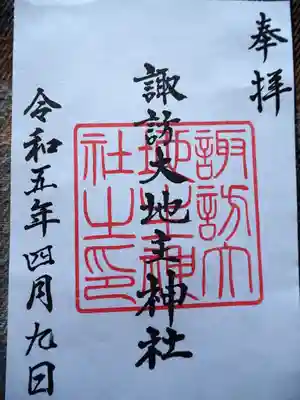 奉拝
諏訪大地主神社
諏訪大
地主神
社之印
令和五年四月九日